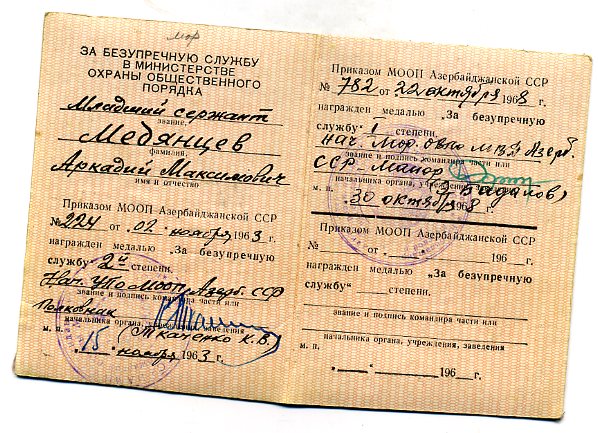 мор
ЗА БЕЗУПРЕЧНУЮ СЛУЖБУ
В МИНИСТЕРСТВЕ
ОХРАНЫ ОБЩЕСТВЕННОГО
ПОРЯДКА
Младший сержант
звание,
Медянцев
фамилия,
Аркадий Максимович
имя и отчество
Приказом МООП Азербайджанской ССР
№ 224 от „02" ноября 1963 г.
награжден медалью „За безупречную
службу" 2й степени.
Нач. УПО МООП Азерб. ССР
звание и подпись командира части или
Полковник
начальника органа, учреждения, заведения
(Ткаченко К.В.
м. п. „15" ноября 1963 г.
Приказом МООП Азербайджанской ССР
№ 782 от 22 октября 1968 г.
награжден медалью „За безупречную
службу" I степени.
нач. Мор. ово МВД Азерб.
звание и подпись командира части или
ССР - Майор
начальника органа, учреждения, заведения
м. п.
30 октября 8 г.
Приказом МООП Азербайджанской ССР
№ от „ " 196 г.
награжден медалью „За безупречную
службу" степени.
звание и подпись командира части или
начальника органа, учреждения, заведения
м. п.
„ " 196 г.